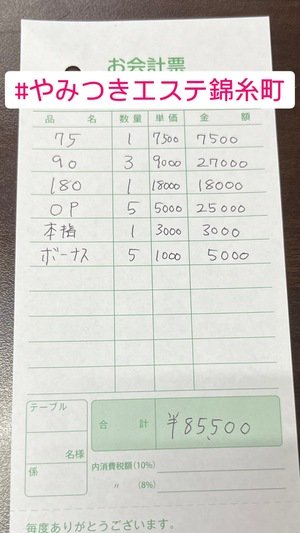 お会計票
#やみつきエステ錦糸町
品 名 数量 単価 金 額
75 1 7500 7500
90 3 9000 27000
180 1 18000 18000
OP 5 5000 25000
本指 1 3000 3000
ボーナス 5 1000 5000
テーブル
名様
係
合 計 ¥85,500
内消費税額(10%)
〃 (8%)
毎度ありがとうございます。